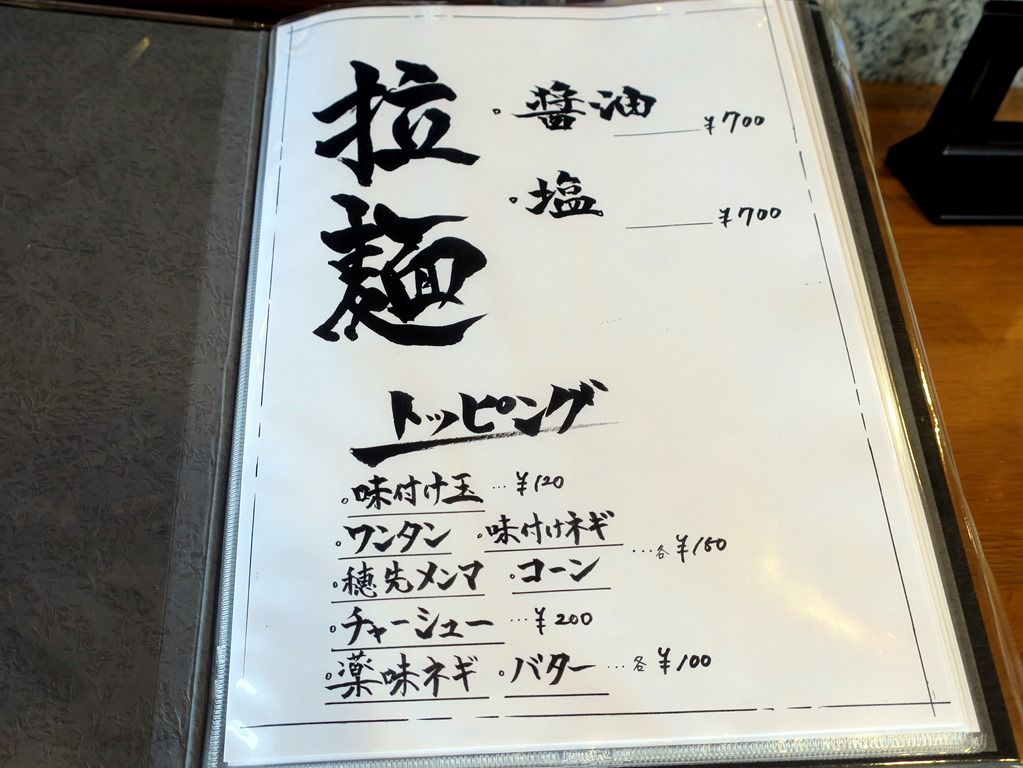 拉麺
。醤油 ¥700
。塩 ¥700
トッピング
。味付け玉 … ¥120
。ワンタン 。味付けネギ
。穂先メンマ 。コーン … 各 ¥150
。チャーシュー … ¥200
。薬味ネギ 。バター … 各 ¥100